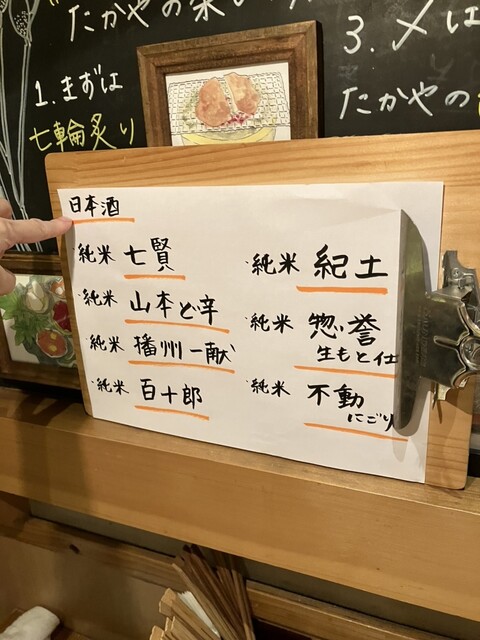 たかやの楽し
1. まずは
七輪炙り
3. 〆は
たかやの
日本酒
・純米 七賢
・純米 山本ど辛
・純米 播州一献
・純米 百十郎
・純米 紀土
・純米 惣誉
生もと仕
・純米 不動
にごり